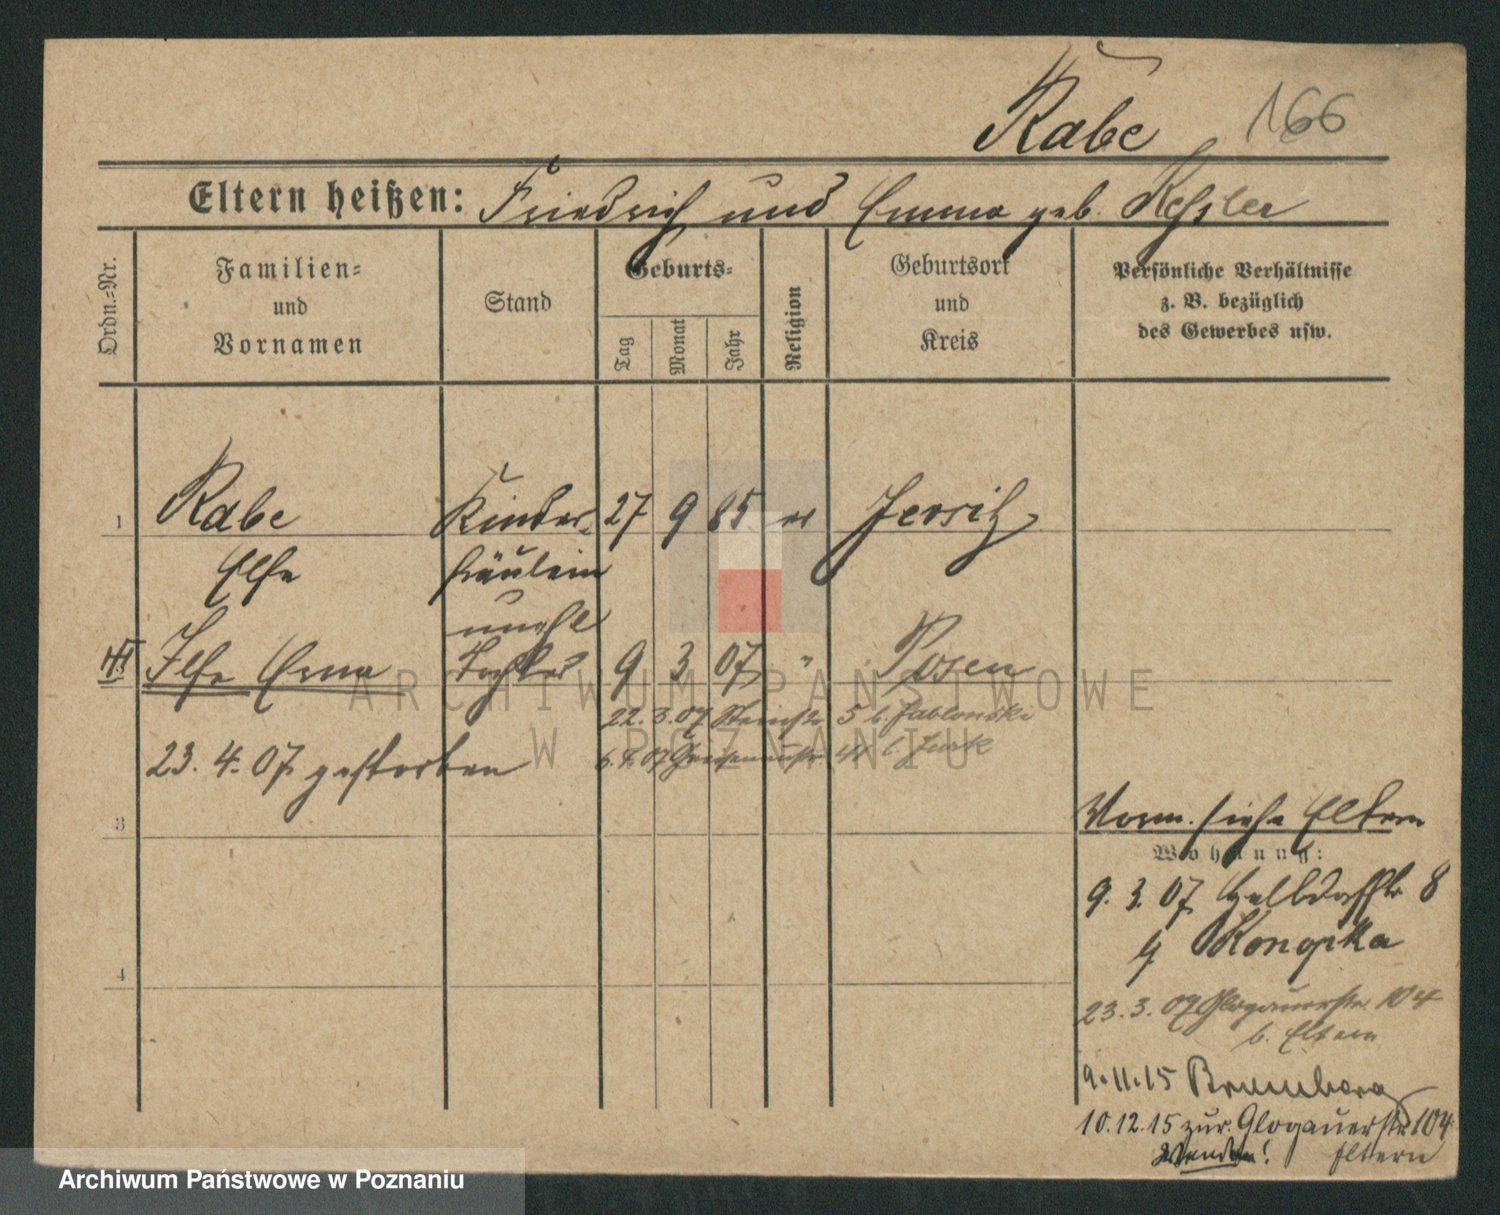 Rabe 166
Eltern heißen: Friedrich und Emma geb. Kessler
Ordn.-Nr.
Familien-
und
Vornamen
Stand
Geburts-
Tag
Monat
Jahr
Religion
Geburtsort
und
Kreis
Persönliche Verhältnisse
z. B. bezüglich
des Gewerbes usw.
1 Rabe Kinder- 27 9 85 ev Jersitz
Else fräulein
unehl
Ilse Erna Tochter 9 3 07 " Posen
22. 3. 07 5 b. Jablonski
23. 4. 07 gestorben
6. 4. 07 Gneisenaustr. b.
3
Vorm. siehe Eltern
Wohnung:
9. 3. 07 8
4
23. 3. 07 Glogauerstr. 104
b. Eltern
9.11.15 Bromberg
10.12.15 zur. Glogauerstr 104
Wenden! Eltern
ARCHIWUM PAŃSTWOWE
W POZNANIU
Archiwum Państwowe w Poznaniu